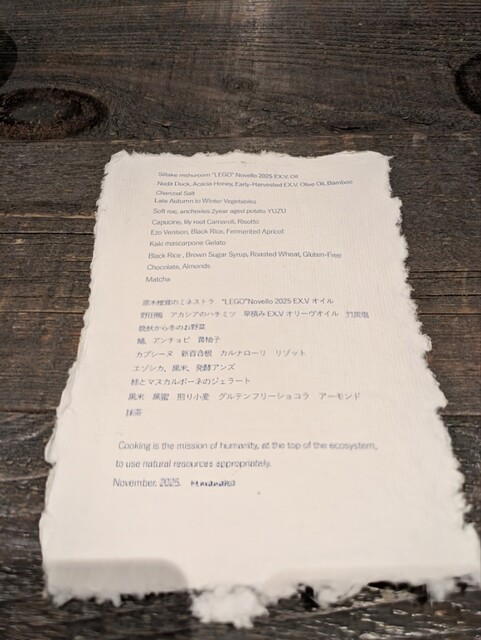 Siitake mshuroom "LEGO" Novello 2025 EX.V, Oil
Noda Duck, Acacia Honey, Early-Harvested EX.V, Olive Oil, Bamboo
Charcoal Salt
Late Autumn to Winter Vegetables
Soft roe, anchovies 2year aged potato YUZU
Capucine, lily root Carnaroli, Risotto
Ezo Venison, Black Rice, Fermented Apricot
Kaki mascarpone Gelato
Black Rice , Brown Sugar Syrup, Roasted Wheat, Gluten-Free
Chocolate, Almonds
Matcha
原木椎茸のミネストラ "LEGO"Novello 2025 EX.V オイル
野田鴨 アカシアのハチミツ 早積み EX.V オリーヴオイル 竹炭塩
晩秋から冬のお野菜
アンチョビ 黄柚子
カプシーヌ 新百合根 カルナローリ リゾット
エゾシカ、黒米、発酵アンズ
柿とマスカルポーネのジェラート
黒米 黒蜜 煎り小麦 グルテンフリーショコラ アーモンド
抹茶
Cooking is the mission of humanity, at the top of the ecosystem,
to use natural resources appropriately.
November, 2025.